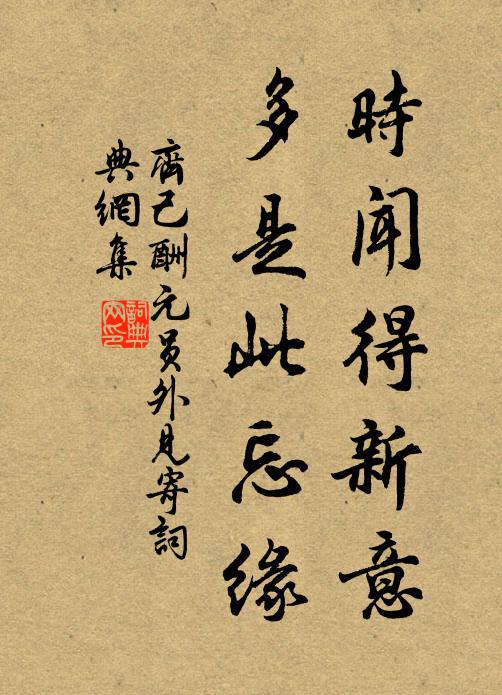 時聞得新意
多是此忘緣
齊己酬元员外見寄詞
典網集
詞典
网印